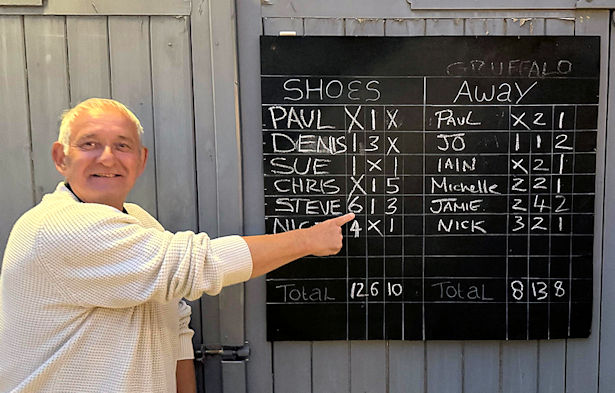 GRUFFALO
SHOES AWAY
PAUL X 1 X PAUL X 2 1
DENIS 1 3 X JO 1 1 2
SUE 1 X 1 IAIN X 2 1
CHRIS X 1 5 Michelle 2 2 1
STEVE 6 1 3 JAMIE 2 4 2
4 X 1 NICK 3 2 1
Total 12 6 10 Total 8 13 8